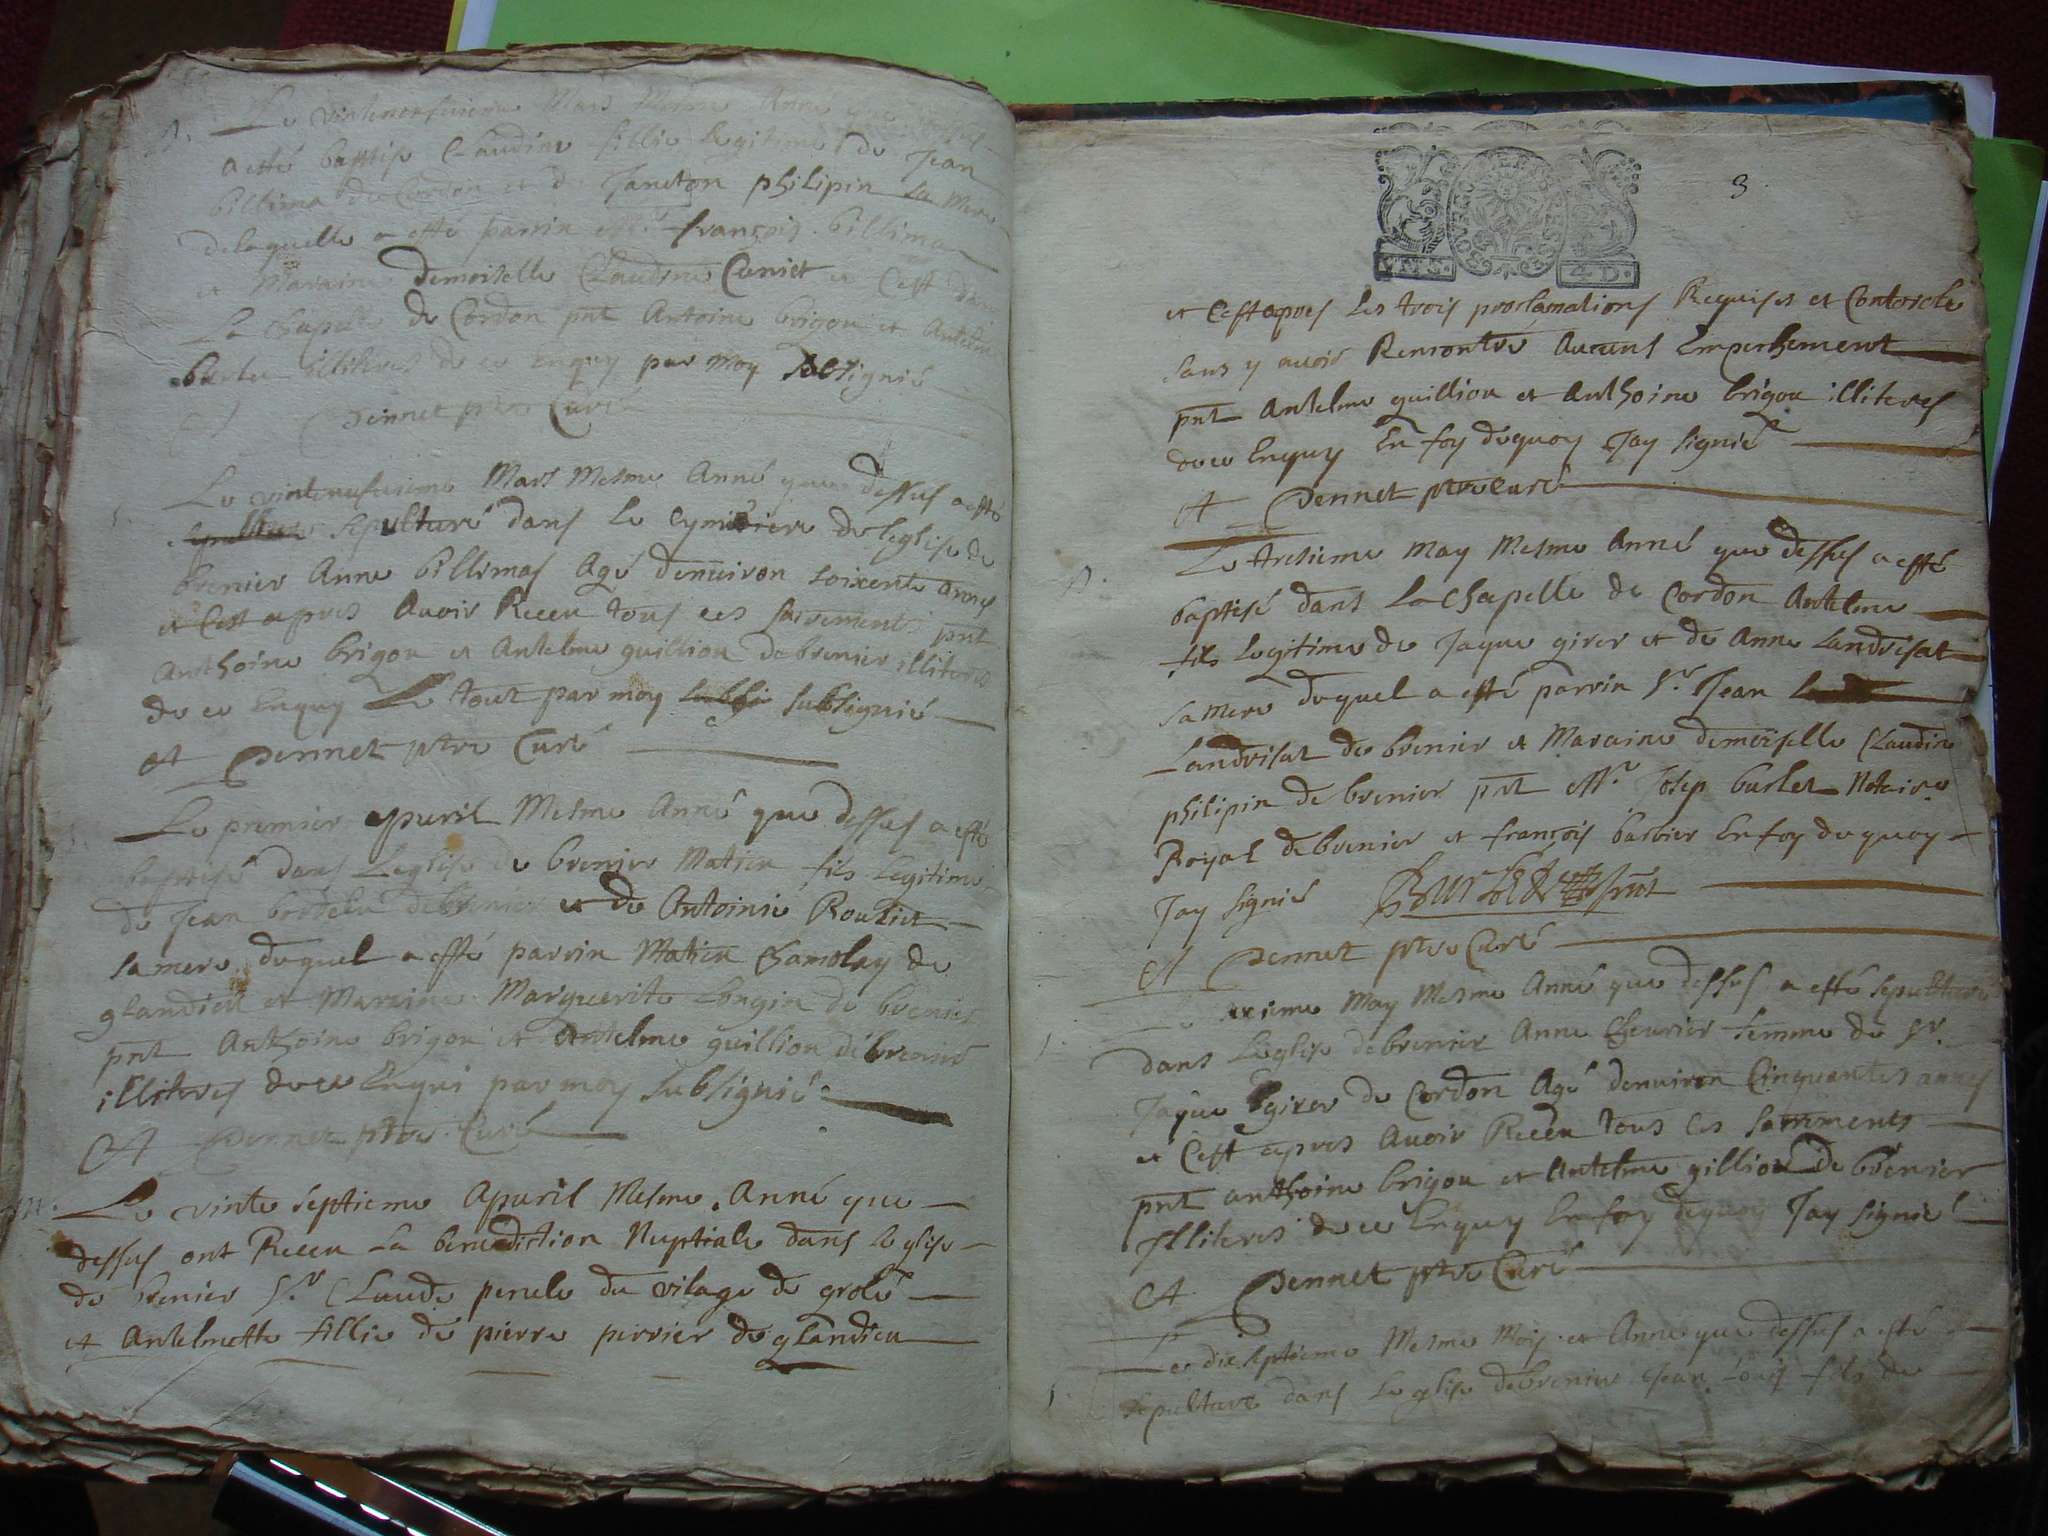 Le vinteneufuieme Mars Mesme Anné que dessus
a esté baptise Claudine fillie Legitime de Jean
billima de Cordon et de Janeton philipin La Mere
de laquelle a esté parrin Mr. françois billima
et Maraine demoiselle Claudine Cuniet et C'est dans
La Chapelle de Cordon pnt Antoine brigou et Antelme
illiteres de ce enquy par moy sousignié
Dennet ptre Curé
Le vinteneufuieme Mars Mesme Anné que dessus a esté
sepulturé dans le Cymitiere de Leglise de
brenier Anne billimas Agé denuiron soixente annes
et C'est apres Auoir Receu tous ces sacrements pnt
Anthoine brigou et Antelme guillion de brenier illiteres
de ce Enquy Le tout par moy subsignié
Et Dennet ptre Curé
Le premier apuril Mesme Anné que dessus a esté
baptisé dans Leglise de brenier Matieu fils Legitime
de Jean de brenier et de Antoinie Rouliet
sa mere duquel a esté parrin Matieu Chamolay de
glandieu et Maraine Marguerite Longin de brenier
pnt Anthoine brigou et Antelme guillion de brenier
illiteres de ce Enqui par moy subsignié
Et Dennet ptre Curé
M. Le vinte septieme Apuril Mesme Anné que
dessus ont Receu La benediction Nuptiale dans Leglise
de brenier Sr. Claude perule du vilage de grolé
et Antelmette fillie de pierre perrier de glandieu
VN S. 4 D.
3
et C'est apres Les trois proclamations Requises et
sans y auoir Remontré Aucuns Empechement
pnt Antelme guillion et Anthoine brigou illiteres
de ce Enquy En foy dequoy Jay signié
Et Dennet ptre curé
Le tresieme may Mesme Anné que dessus a esté
baptisé dans La Chapelle de Cordon Antelme
fils Legitime de Jaque girer et de Anne Landrisat
sa Mere duquel a esté parrin Sr. Jean
Landrisat de brenier et Maraine demoiselle Claudine
philipin de brenier pnt Mr. Josep burlet Notaire
Royal de brenier et françois barbier En foy de quoy
Jay signié Burlet pnt
Et Dennet ptre Curé
may Mesme Anné que dessus a esté sepulturé
dans Leglise de brenier Anne Cheurier femme de Sr.
Jaque girer de Cordon Agé denuiron Cinquantes annes
et C'est apres Auoir Receu tous Ces sacrements
pnt anthoine brigou et Antelme gillion de brenier
Illiteres de ce Enquy En foy dequoy Jay signié
Et Dennet ptre Curé
Le dixseptieme Mesme Mois et Anne que dessus a esté
sepulturé dans Leglise de brenier Jean Louis fils de